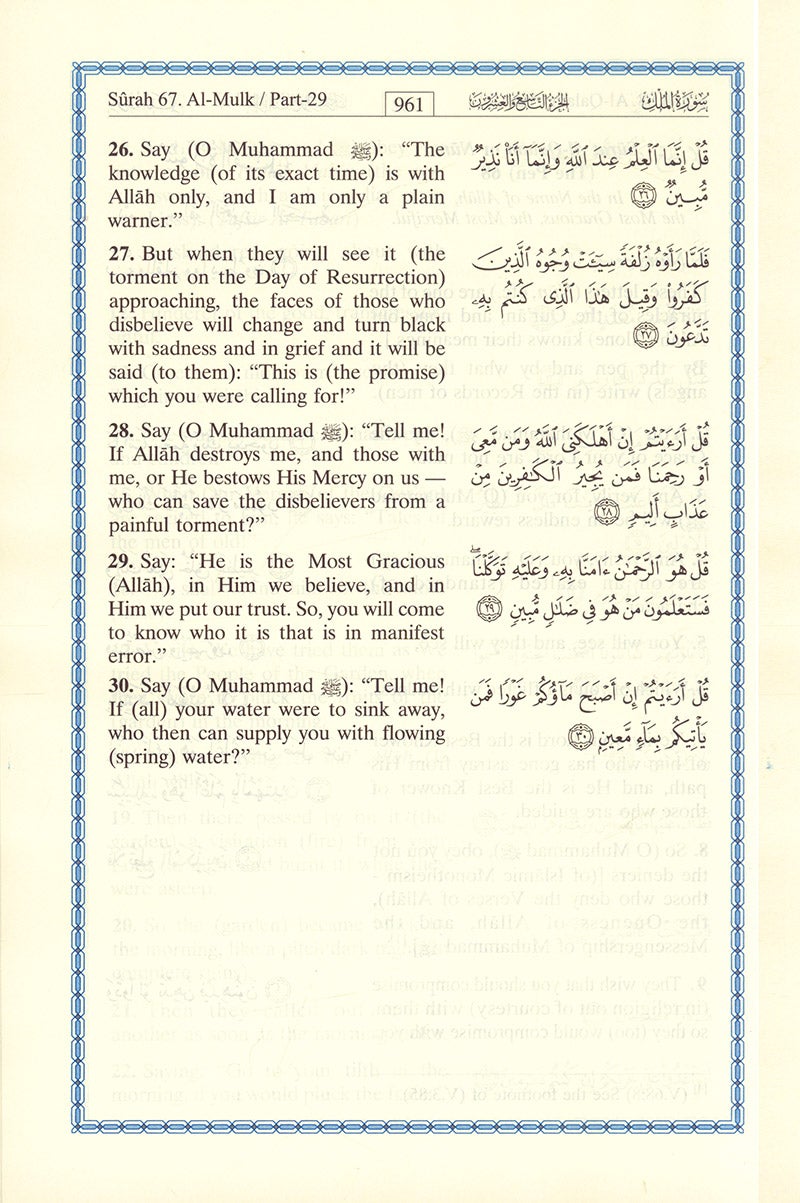 Sûrah 67. Al-Mulk / Part-29
961
الجزء التاسع والعشرون
سورة الملك
26. Say (O Muhammad ﷺ): “The
knowledge (of its exact time) is with
Allâh only, and I am only a plain
warner.”
قُلْ إِنَّمَا ٱلْعِلْمُ عِندَ ٱللَّهِ وَإِنَّمَآ أَنَا۠ نَذِيرٌ
مُّبِينٌ ٢٦
27. But when they will see it (the
torment on the Day of Resurrection)
approaching, the faces of those who
disbelieve will change and turn black
with sadness and in grief and it will be
said (to them): “This is (the promise)
which you were calling for!”
فَلَمَّا رَأَوْهُ زُلْفَةً سِيٓـَٔتْ وُجُوهُ ٱلَّذِينَ
كَفَرُوا۟ وَقِيلَ هَٰذَا ٱلَّذِى كُنتُم بِهِۦ
تَدَّعُونَ ٢٧
28. Say (O Muhammad ﷺ): “Tell me!
If Allâh destroys me, and those with
me, or He bestows His Mercy on us —
who can save the disbelievers from a
painful torment?”
قُلْ أَرَءَيْتُمْ إِنْ أَهْلَكَنِىَ ٱللَّهُ وَمَن مَّعِىَ
أَوْ رَحِمَنَا فَمَن يُجِيرُ ٱلْكَٰفِرِينَ مِنْ
عَذَابٍ أَلِيمٍ ٢٨
29. Say: “He is the Most Gracious
(Allâh), in Him we believe, and in
Him we put our trust. So, you will come
to know who it is that is in manifest
error.”
قُلْ هُوَ ٱلرَّحْمَٰنُ ءَامَنَّا بِهِۦ وَعَلَيْهِ تَوَكَّلْنَا ۖ
فَسَتَعْلَمُونَ مَنْ هُوَ فِى ضَلَٰلٍ مُّبِينٍ ٢٩
30. Say (O Muhammad ﷺ): “Tell me!
If (all) your water were to sink away,
who then can supply you with flowing
(spring) water?”
قُلْ أَرَءَيْتُمْ إِنْ أَصْبَحَ مَآؤُكُمْ غَوْرًا فَمَن
يَأْتِيكُم بِمَآءٍ مَّعِينٍ ٣٠